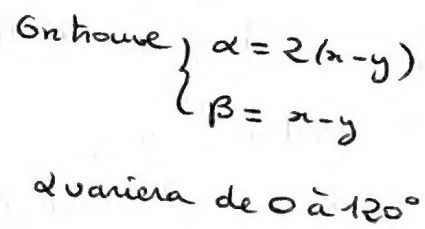 On trouve { α = 2(x-y)
β = x-y
α variera de 0 à 120°